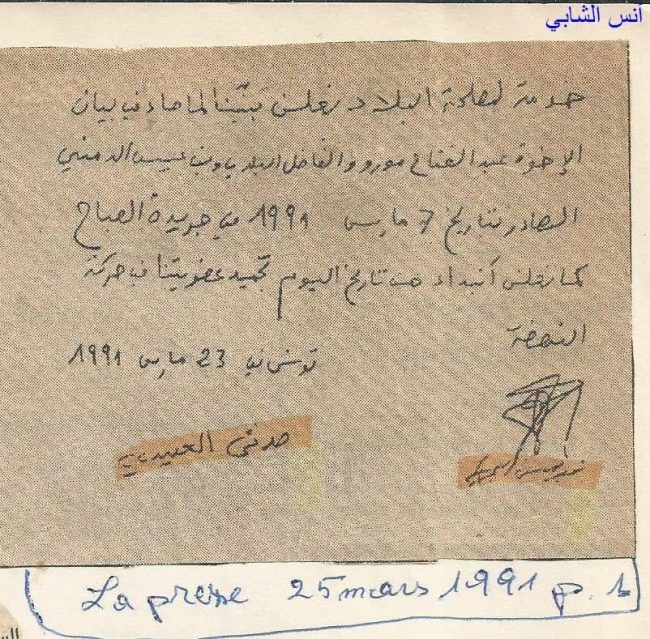 أنس الشابي
خدمة لمصلحة البلاد نعلن تبنينا لما جاء في بيان
الإخوة عبد الفتاح مورو والفاضل البلدي وبن عيسى الدمني
الصادر بتاريخ 7 مارس 1991 في جريدة الصباح
كما نعلن ابتداء من تاريخ اليوم تجميد عضويتنا في حركة
النهضة
تونس في 23 مارس 1991
La presse 25 mars 1991 p. 1